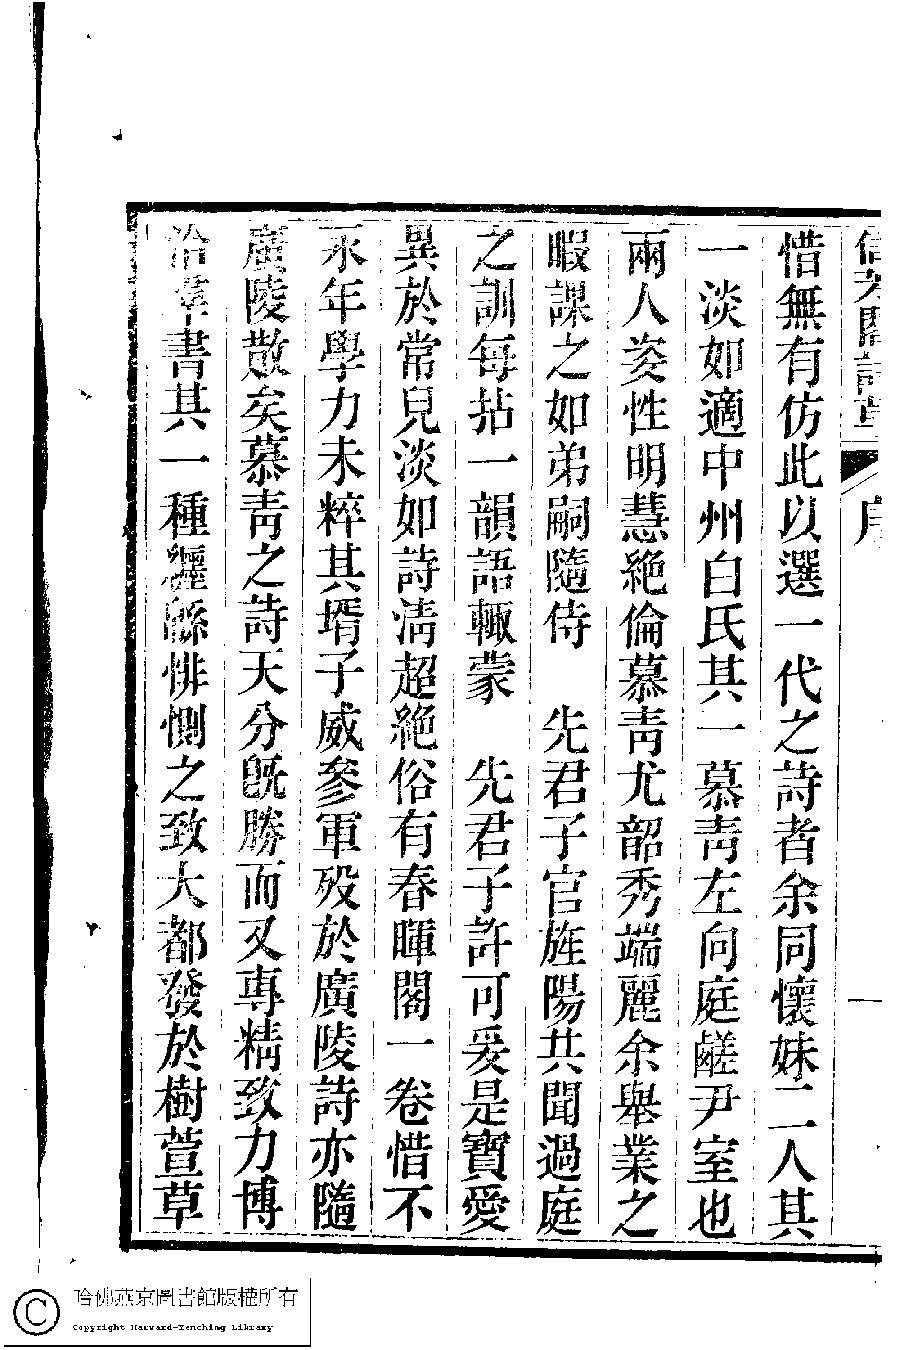 信芳閣詩草 序 一
惜無有仿此以選一代之詩者余同懷妹二人其
一淡如適中州白氏其一慕青左向庭鹺尹室也
兩人姿性明慧絕倫慕青尤韶秀端麗余舉業之
暇課之如弟嗣隨侍 先君子官旌陽共聞過庭
之訓每拈一韻語輙蒙 先君子許可爰是寶愛
異於常兒淡如詩清超絕俗有春暉閣一卷惜不
永年學力未粹其壻子威參軍歿於廣陵詩亦隨
廣陵散矣慕青之詩天分旣勝而又專精致力博
洽羣書其一種纏緜悱惻之致大都發於樹萱草
哈佛燕京圖書館版權所有
Copyright Harvard-Yenching Library